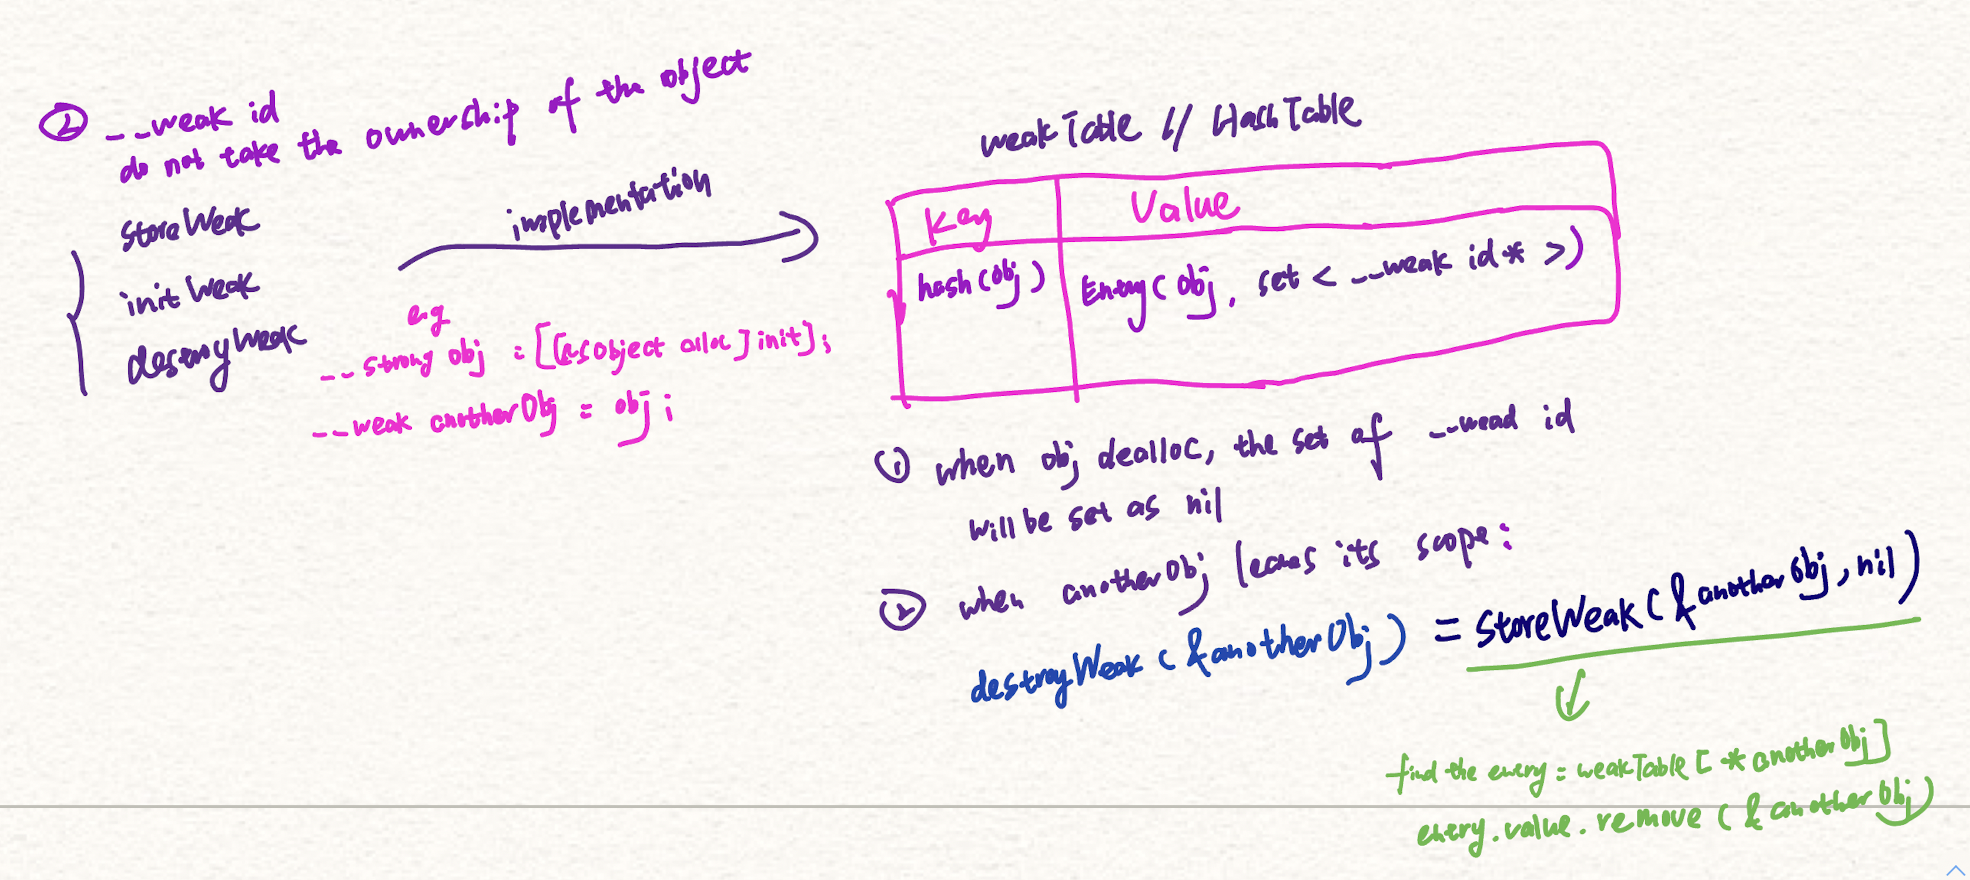 ② __weak id
do not take the ownership of the object
storeWeak
initWeak
destroyWeak
implementation
e.g
__strong obj = [[NSObject alloc] init];
__weak anotherObj = obj;
weakTable // HashTable
Key Value
hash(obj) Entry(obj, set < __weak id* >)
① when obj dealloc, the set of __wead id
will be set as nil
② when anotherObj leaves its scope:
destroyWeak(&anotherObj) = storeWeak(&anotherObj, nil)
find the entry = weakTable[*anotherObj]
entry.value.remove(&anotherObj)